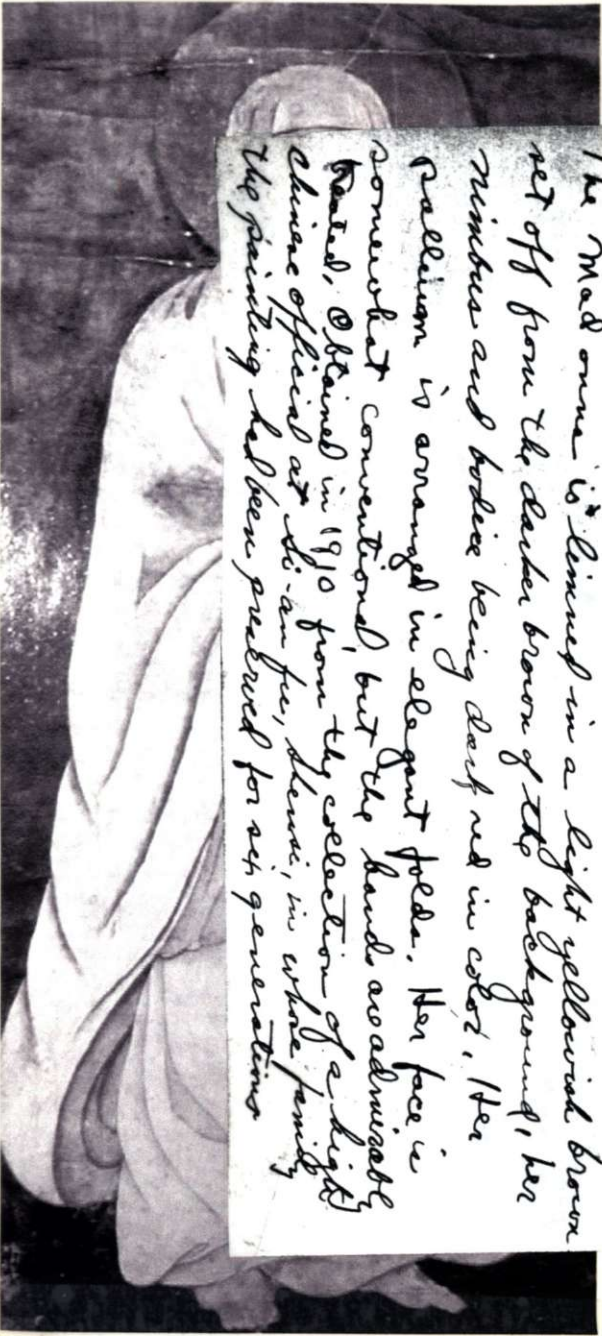 The Madonna is limned in a light yellowish brown
set off from the darker brown of the background, her
nimbus and bodice being dark red in color. Her
pallium is arranged in elegant folds. Her face is
somewhat conventional, but the hands are admirably
treated. Obtained in 1910 from the collection of a high
Chinese official at Si-an fu, Shensi, in whose family
the painting had been preserved for six generations